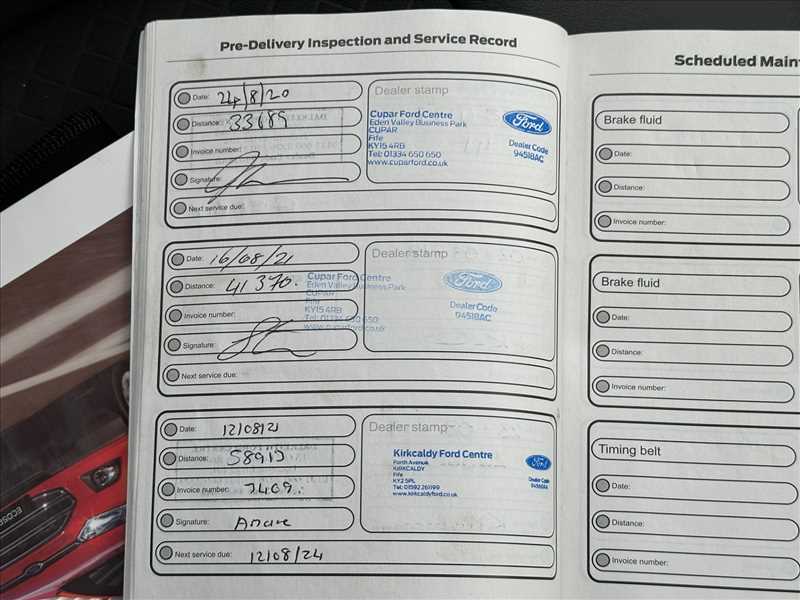 Pre-Delivery Inspection and Service Record
Date: 24/8/20
Distance: 33689
Invoice number:
Signature:
Next service due:
Dealer stamp
Cupar Ford Centre
Eden Valley Business Park
CUPAR
Fife
KY15 4RB
Tel: 01334 650 650
www.cuparford.co.uk
Ford
Dealer Code
94518AC
Date: 16/08/21
Distance: 41 370.
Invoice number:
Signature:
Next service due:
Dealer stamp
Cupar Ford Centre
Eden Valley Business Park
CUPAR
Fife
KY15 4RB
Tel: 01334 650 650
www.cuparford.co.uk
Ford
Dealer Code
94518AC
Date:
Distance:
Invoice number:
Signature:
Next service due: 12/08/24
Dealer stamp
Kirkcaldy Ford Centre
Forth Avenue
KIRKCALDY
Fife
KY2 5PL
Tel: 01592 261199
www.kirkcaldyford.co.uk
Ford
Dealer Code
Scheduled Maint
Brake fluid
Date:
Distance:
Invoice number:
Brake fluid
Date:
Distance:
Invoice number:
Timing belt
Date:
Distance:
Invoice number: